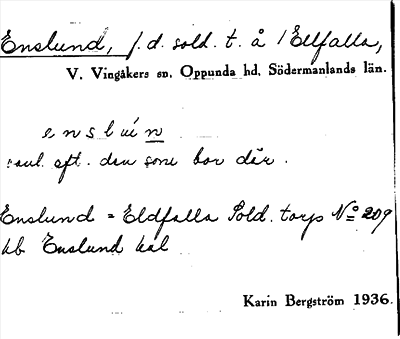 Enslund, f.d. sold. t. å /Elfalla,
V. Vingåkers sn. Oppunda hd. Södermanlands län.
e n s l u n
saml. eft. den som bor där.
Enslund = Eldfalla Sold. torp No 209
kb Enslund kal
Karin Bergström 1936.